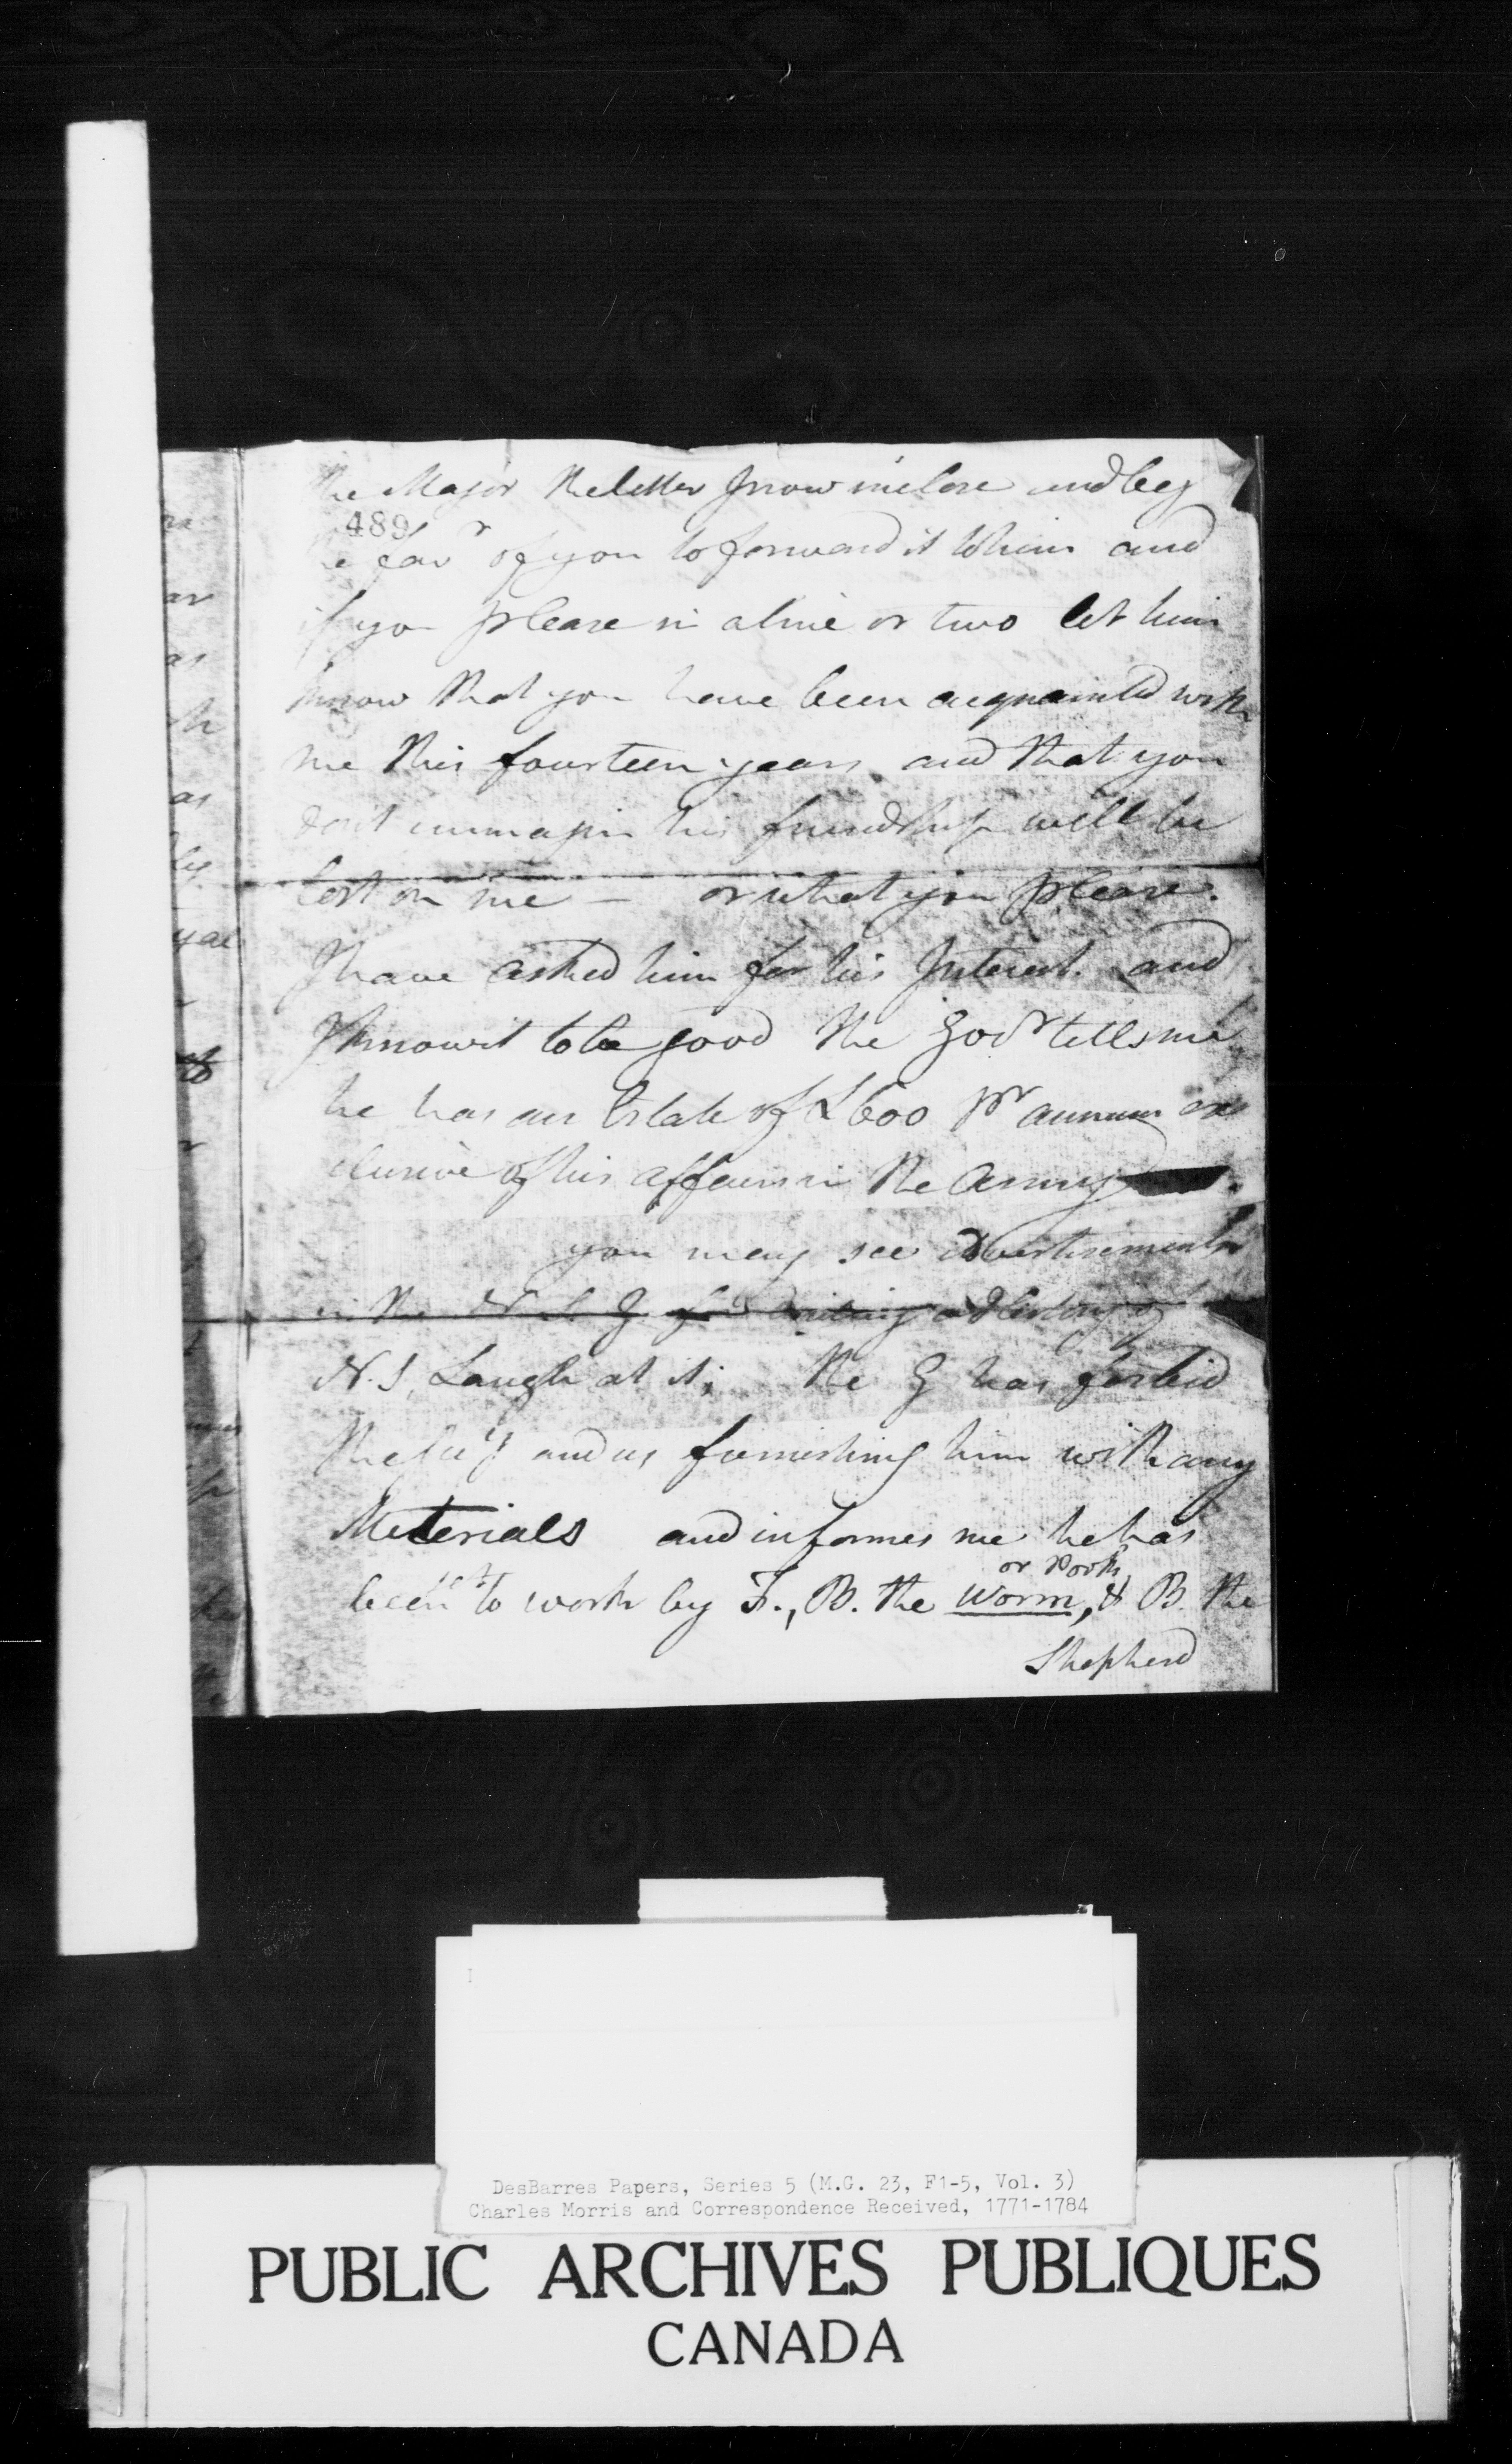 the Major the letter I now inclose and beg
489
favr of you to forward it to him and
if you please in a line or two let him
know that you have been acquainted with
me this fourteen years and that you
don't immagin his friendship will be
lost on me — or what you please.
I have asked him for his Interest. and
I know it to be good the Govr tells me
he has an Estate of £600 pr annum ex
clusive of his affairs in the Army
you may see advertisements
in the N. S. G. for writing a History of
N.S. Laugh at it; the G has forbid
the Secy and us furnishing him with any
Materials and informes me he has
or Pooh
been to work by F., B. the Worm, & B. the
Shepherd
ar
as
as
yal
DesBarres Papers, Series 5 (M.G. 23, F1-5, Vol. 3)
Charles Morris and Correspondence Received, 1771-1784
PUBLIC ARCHIVES PUBLIQUES
CANADA